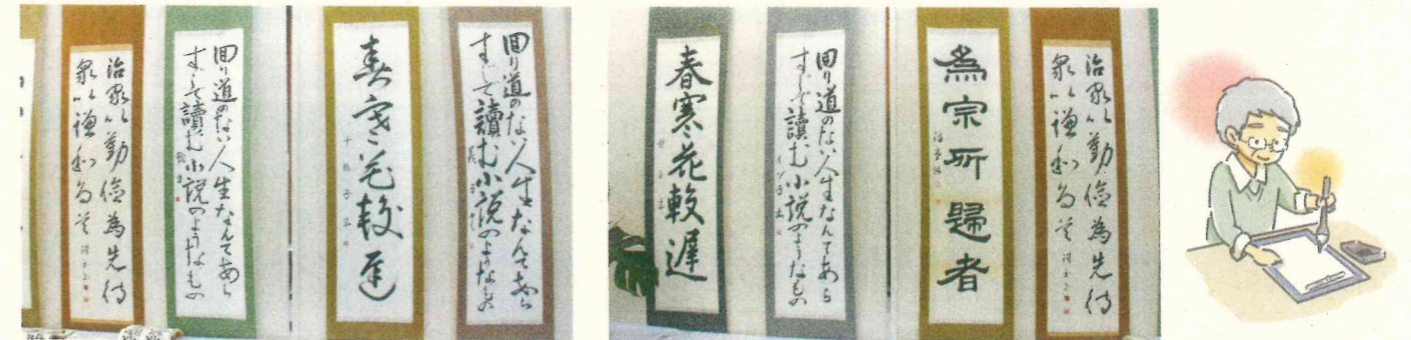 治家以勤儉為先待
衆以謙和為
回り道のない人生なんてあら
すじで讀む小説のようなもの
春寒花較遅
回り道のない人生なんてあら
すじで讀む小説のようなもの
春寒花較遲
回り道のない人生なんてあら
すじで讀む小説のようなもの
為宗所歸者
治家以勤儉為先待
衆以謙和為